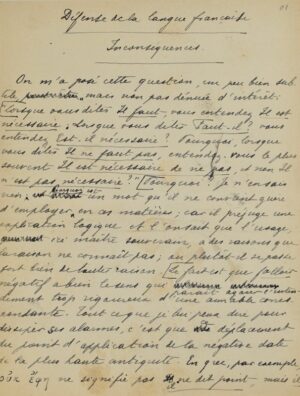 Défense de la langue française
Inconséquences.
On m'a posé cette question, un peu bien sub
tile, mais non pas dénuée d'intérêt:
"Lorsque vous dites Il faut, vous entendez Il est
nécessaire. Lorsque vous dites Faut-il? vous
entendez Est-il nécessaire? Pourquoi, lorsque
vous dites Il ne faut pas, entendez-vous le plus
souvent Il est nécessaire de ne pas, et non Il
n'est pas nécessaire?" Pourquoi? Je n'en sais
rien, et un mot qu'il ne convient guère
d'employer en ces matières; car il préjuge une
explication logique et l'on sait que l'usage,
maître souverain, a des raisons que
la raison ne connaît pas; ou plutôt il se passe
fort bien de toute raison. Le fait est que falloir
négatif a bien le sens que
diment trop rigoureux d'une aimable corres
pondante. Tout ce que je lui puis dire pour
dissiper ses alarmes, c'est que déplacement
du point d'application de la négative date
de la plus haute antiquité. En grec, par exemple,
οὐκ ἔφη ne signifie pas Il ne dit point, mais il